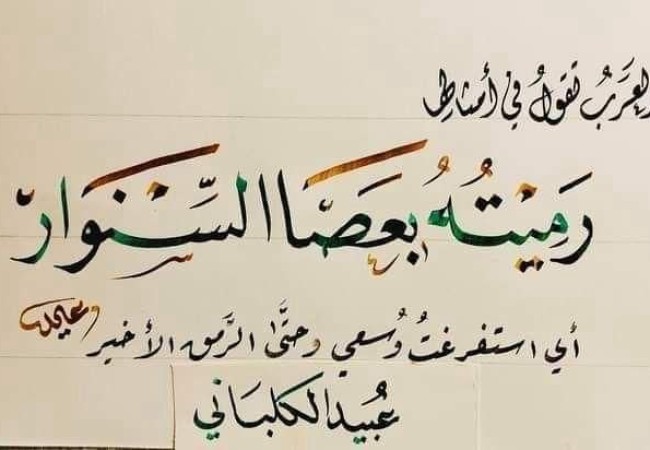 العَرَبُ تقولُ في أمثالها
رَمَيْتُهُ بعَصَا السِّنْوَارْ
أي استفرغتُ وُسعي وحتَّى الرَّمق الأخير
عُبيد الكلبَاني